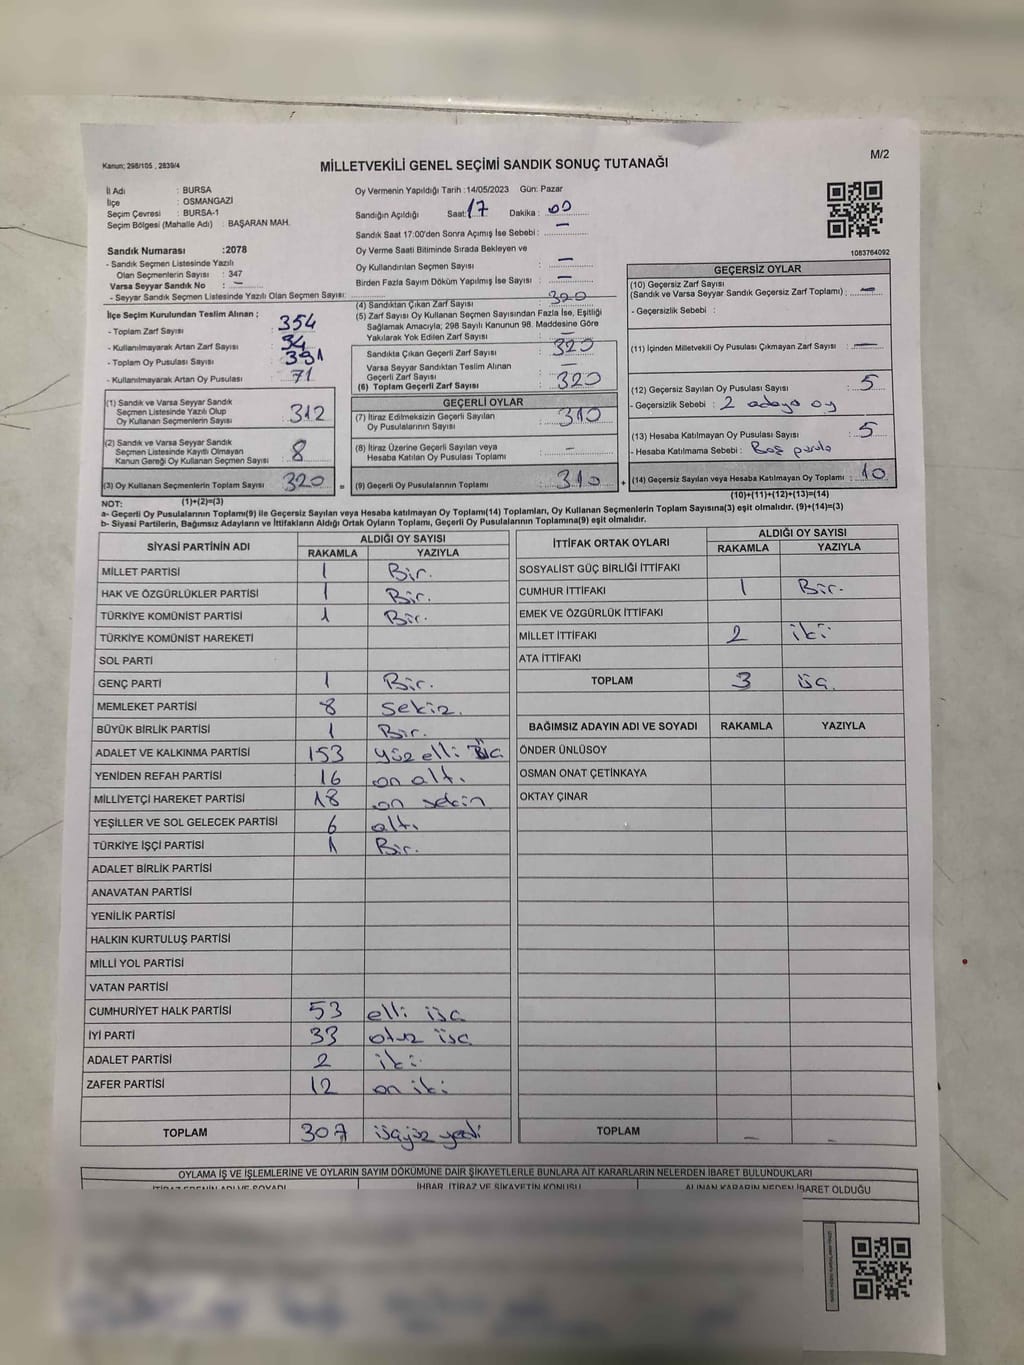 Kanun; 298/105 , 2839/4
MİLLETVEKİLİ GENEL SEÇİMİ SANDIK SONUÇ TUTANAĞI
M/2
İl Adı : BURSA
İlçe : OSMANGAZİ
Seçim Çevresi : BURSA-1
Seçim Bölgesi (Mahalle Adı) : BAŞARAN MAH.
Oy Vermenin Yapıldığı Tarih :14/05/2023 Gün: Pazar
Sandığın Açıldığı Saat: 17 Dakika : 00
Sandık Saat 17:00'den Sonra Açımış İse Sebebi : –
Oy Verme Saati Bitiminde Sırada Bekleyen ve
Oy Kullandırılan Seçmen Sayısı : –
Birden Fazla Sayım Döküm Yapılmış İse Sayısı : –
1083764092
Sandık Numarası :2078
- Sandık Seçmen Listesinde Yazılı
Olan Seçmenlerin Sayısı : 347
Varsa Seyyar Sandık No : –
- Seyyar Sandık Seçmen Listesinde Yazılı Olan Seçmen Sayısı:
İlçe Seçim Kurulundan Teslim Alınan ;
- Toplam Zarf Sayısı : 354
- Kullanılmayarak Artan Zarf Sayısı : 34
- Toplam Oy Pusulası Sayısı : 391
- Kullanılmayarak Artan Oy Pusulası : 71
(1) Sandık ve Varsa Seyyar Sandık
Seçmen Listesinde Yazılı Olup
Oy Kullanan Seçmenlerin Sayısı : 312
(2) Sandık ve Varsa Seyyar Sandık
Seçmen Listesinde Kayıtlı Olmayan
Kanun Gereği Oy Kullanan Seçmen Sayısı : 8
(3) Oy Kullanan Seçmenlerin Toplam Sayısı : 320
(1)+(2)=(3)
(4) Sandıktan Çıkan Zarf Sayısı : 320
(5) Zarf Sayısı Oy Kullanan Seçmen Sayısından Fazla İse, Eşitliği
Sağlamak Amacıyla; 298 Sayılı Kanunun 98. Maddesine Göre
Yakılarak Yok Edilen Zarf Sayısı :
Sandıkta Çıkan Geçerli Zarf Sayısı : 320
Varsa Seyyar Sandıktan Teslim Alınan
Geçerli Zarf Sayısı :
(6) Toplam Geçerli Zarf Sayısı : 320
GEÇERLİ OYLAR
(7) İtiraz Edilmeksizin Geçerli Sayılan
Oy Pusulalarının Sayısı : 310
(8) İtiraz Üzerine Geçerli Sayılan veya
Hesaba Katılan Oy Pusulası Toplamı : –
= (9) Geçerli Oy Pusulalarının Toplamı : 310 +
GEÇERSİZ OYLAR
(10) Geçersiz Zarf Sayısı
(Sandık ve Varsa Seyyar Sandık Geçersiz Zarf Toplamı) : –
- Geçersizlik Sebebi :
(11) İçinden Milletvekili Oy Pusulası Çıkmayan Zarf Sayısı : –
(12) Geçersiz Sayılan Oy Pusulası Sayısı : 5
- Geçersizlik Sebebi : 2 adaya oy
(13) Hesaba Katılmayan Oy Pusulası Sayısı : 5
- Hesaba Katılmama Sebebi : Boş pusula
(14) Geçersiz Sayılan veya Hesaba Katılmayan Oy Toplamı : 10
(10)+(11)+(12)+(13)=(14)
NOT:
a- Geçerli Oy Pusulalarının Toplamı(9) ile Geçersiz Sayılan veya Hesaba katılmayan Oy Toplamı(14) Toplamları, Oy Kullanan Seçmenlerin Toplam Sayısına(3) eşit olmalıdır. (9)+(14)=(3)
b- Siyasi Partilerin, Bağımsız Adayların ve İttifakların Aldığı Ortak Oyların Toplamı, Geçerli Oy Pusulalarının Toplamına(9) eşit olmalıdır.
SİYASİ PARTİNİN ADI ALDIĞI OY SAYISI
RAKAMLA YAZIYLA
MİLLET PARTİSİ 1 Bir.
HAK VE ÖZGÜRLÜKLER PARTİSİ 1 Bir.
TÜRKİYE KOMÜNİST PARTİSİ 1 Bir.
TÜRKİYE KOMÜNİST HAREKETİ
SOL PARTİ
GENÇ PARTİ 1 Bir.
MEMLEKET PARTİSİ 8 sekiz.
BÜYÜK BİRLİK PARTİSİ 1 Bir.
ADALET VE KALKINMA PARTİSİ 153 yüz elli üç
YENİDEN REFAH PARTİSİ 16 on altı
MİLLİYETÇİ HAREKET PARTİSİ 18 on sekiz
YEŞİLLER VE SOL GELECEK PARTİSİ 6 altı
TÜRKİYE İŞÇİ PARTİSİ 1 Bir.
ADALET BİRLİK PARTİSİ
ANAVATAN PARTİSİ
YENİLİK PARTİSİ
HALKIN KURTULUŞ PARTİSİ
MİLLİ YOL PARTİSİ
VATAN PARTİSİ
CUMHURİYET HALK PARTİSİ 53 elli üç
İYİ PARTİ 33 otuz üç
ADALET PARTİSİ 2 iki
ZAFER PARTİSİ 12 on iki
TOPLAM 307 üçyüz yedi
İTTİFAK ORTAK OYLARI ALDIĞI OY SAYISI
RAKAMLA YAZIYLA
SOSYALİST GÜÇ BİRLİĞİ İTTİFAKI
CUMHUR İTTİFAKI 1 Bir.
EMEK VE ÖZGÜRLÜK İTTİFAKI
MİLLET İTTİFAKI 2 iki
ATA İTTİFAKI
TOPLAM 3 üç.
BAĞIMSIZ ADAYIN ADI VE SOYADI RAKAMLA YAZIYLA
ÖNDER ÜNLÜSOY
OSMAN ONAT ÇETİNKAYA
OKTAY ÇINAR
TOPLAM – –
OYLAMA İŞ VE İŞLEMLERİNE VE OYLARIN SAYIM DÖKÜMÜNE DAİR ŞİKAYETLERLE BUNLARA AİT KARARLARIN NELERDEN İBARET BULUNDUKLARI
İTİRAZ EDENİN ADI VE SOYADI İHBAR, İTİRAZ VE ŞİKAYETİN KONUSU ALINAN KARARIN NEDEN İBARET OLDUĞU